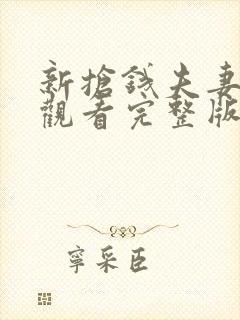 新搶錢夫妻
觀看完整版
寧采臣